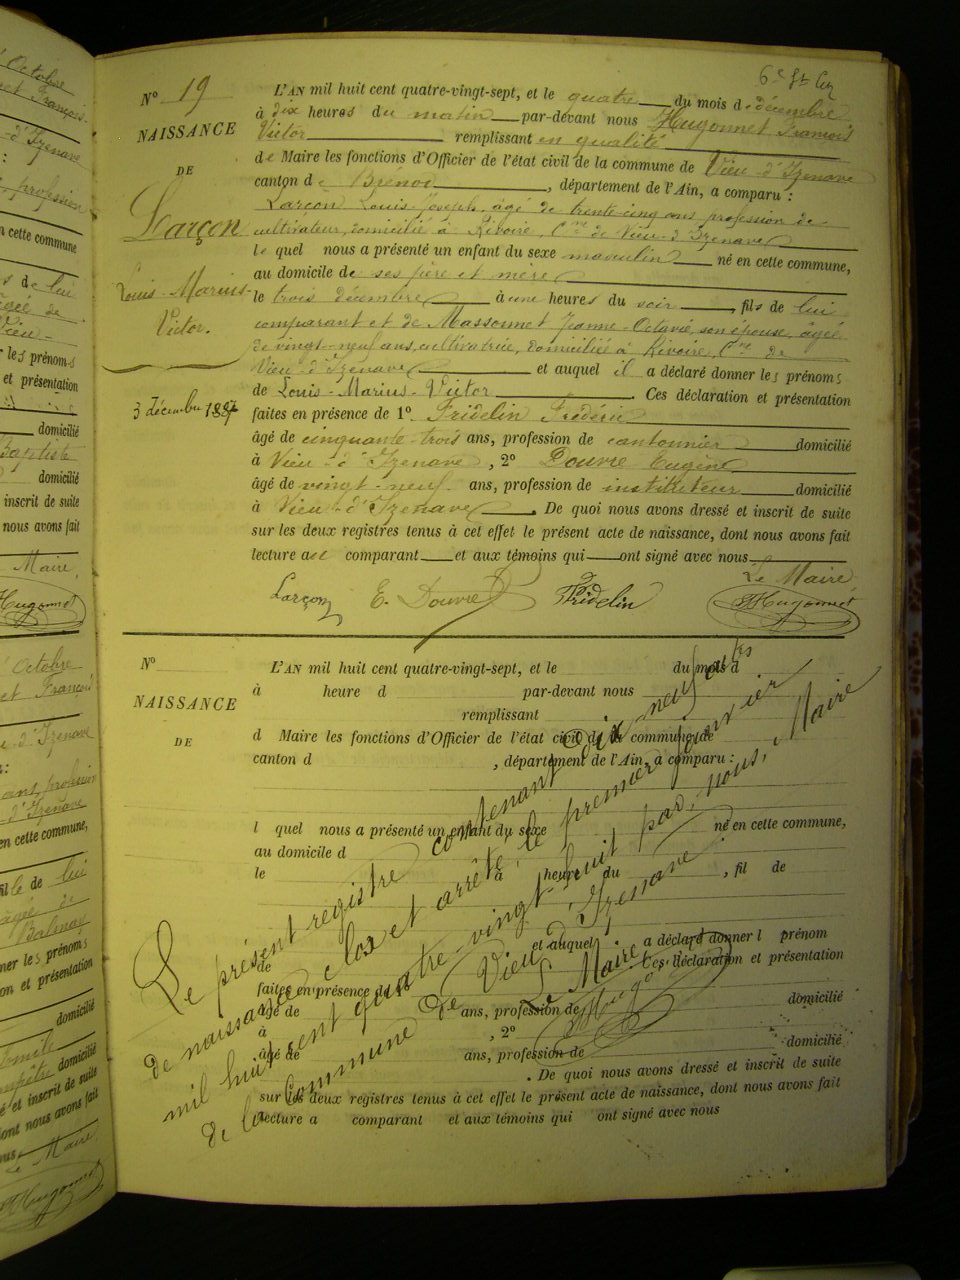 6e
N° 19
NAISSANCE
DE
Larçon
Louis-Marius-
Victor.
3 Décembre 1887
L'AN mil huit cent quatre-vingt-sept, et le quatre du mois de décembre
à dix heures du matin par-devant nous Hugonnet François
Victor remplissant en qualité
de Maire les fonctions d'Officier de l'état civil de la commune de Vieu-d'Izenave
canton de Brénod, département de l'Ain, a comparu :
Larçon Louis-Joseph, âgé de trente-cinq ans, profession de
cultivateur, domicilié à Rivoire, Cne de Vieu-d'Izenave
le quel nous a présenté un enfant du sexe masculin né en cette commune,
au domicile de ses père et mère
le trois décembre à une heures du soir, fils de lui
comparant et de Massonnet Jeanne-Octavie, son épouse, âgée
de vingt-neuf ans, cultivatrice, domiciliée à Rivoire Cne de
Vieu-d'Izenave et auquel il a déclaré donner les prénoms
de Louis-Marius-Victor. Ces déclaration et présentation
faites en présence de 1° Fridelin Frédéric
âgé de cinquante-trois ans, profession de cantonnier domicilié
à Vieu-d'Izenave, 2° Douvre Eugène
âgé de vingt-neuf ans, profession de instituteur domicilié
à Vieu-d'Izenave. De quoi nous avons dressé et inscrit de suite
sur les deux registres tenus à cet effet le présent acte de naissance, dont nous avons fait
lecture au comparant et aux témoins qui ont signé avec nous
Le Maire
Larçon E. Douvre Fridelin Hugonnet
N°
NAISSANCE
DE
L'AN mil huit cent quatre-vingt-sept, et le du mois d
à heure d par-devant nous
remplissant
d Maire les fonctions d'Officier de l'état civil de la commune de
canton d , département de l'Ain, a comparu :
l quel nous a présenté un enfant du sexe né en cette commune,
au domicile d
le à heure du , fil de
et auquel a déclaré donner l prénom
de Ces déclaration et présentation
faites en présence de 1°
âgé de ans, profession de domicilié
à , 2°
âgé de ans, profession de domicilié
à . De quoi nous avons dressé et inscrit de suite
sur les deux registres tenus à cet effet le présent acte de naissance, dont nous avons fait
lecture a comparant et aux témoins qui ont signé avec nous
Le présent registre contenant dix-neuf actes
de naissance clos et arrêté le premier janvier
mil huit cent quatre-vingt-huit par nous, Maire
de la Commune de Vieu-d'Izenave
Le Maire
Hugonnet